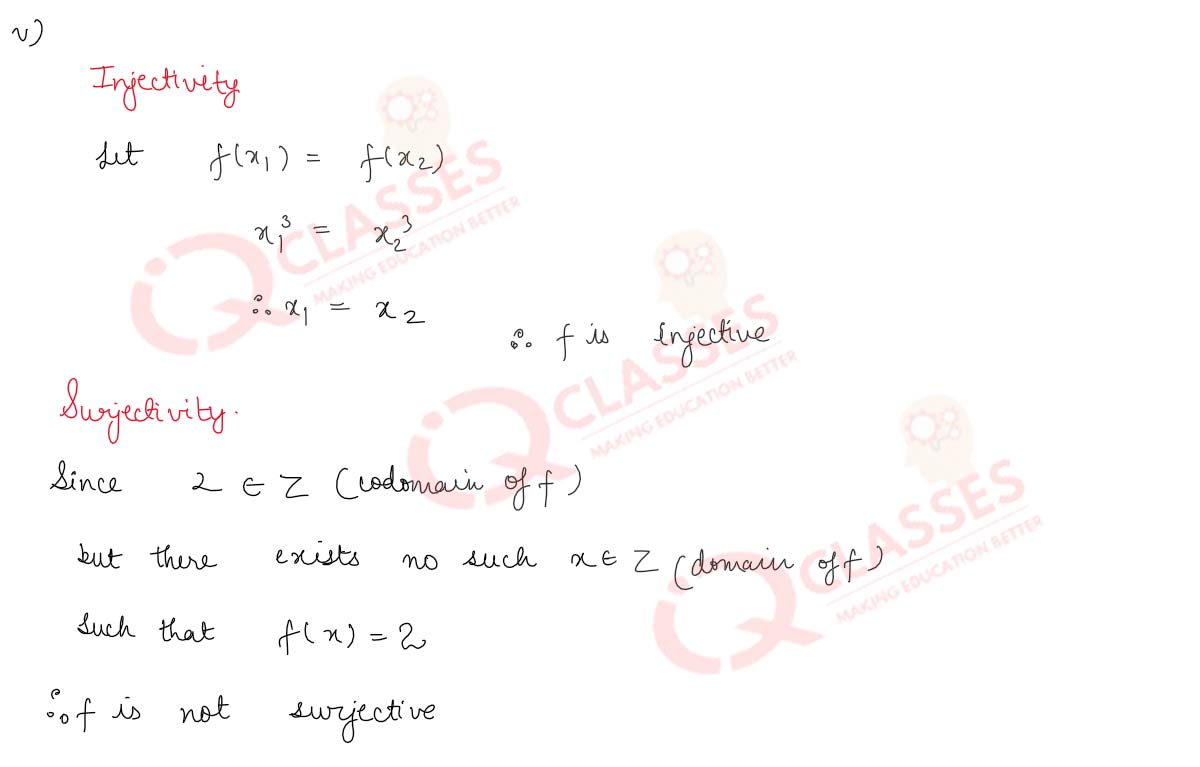 v)
Injectivity
Let f(x₁) = f(x₂)
x₁³ = x₂³
∴ x₁ = x₂
∴ f is injective
Surjectivity.
Since 2 ∈ Z (codomain of f)
but there exists no such x ∈ Z (domain of f)
such that f(x) = 2
∴ f is not surjective
iQ CLASSES
MAKING EDUCATION BETTER
iQ CLASSES
MAKING EDUCATION BETTER
iQ CLASSES
MAKING EDUCATION BETTER